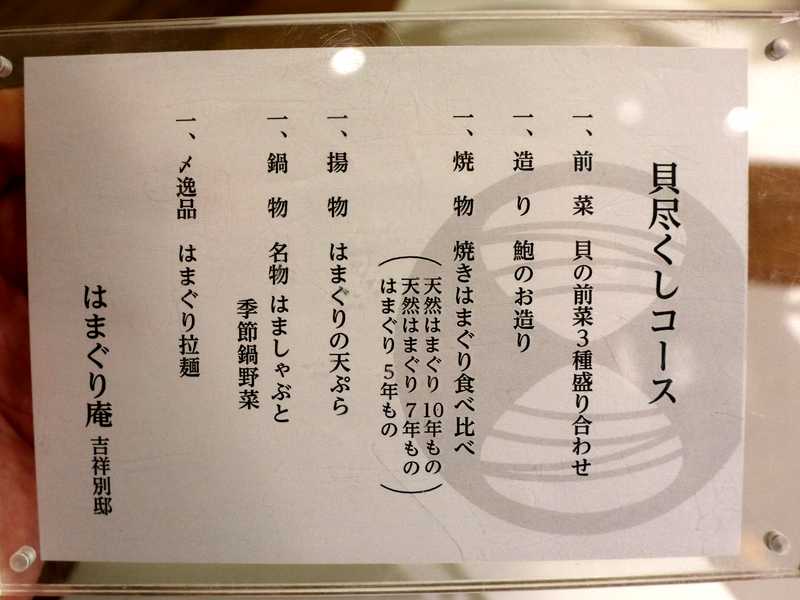 貝尽くしコース
一、前菜 貝の前菜3種盛り合わせ
一、造り 鮑のお造り
一、焼物 焼きはまぐり食べ比べ
(天然はまぐり 10年もの
天然はまぐり 7年もの
はまぐり 5年もの)
一、揚物 はまぐりの天ぷら
一、鍋物 名物 はましゃぶと
季節鍋野菜
一、〆逸品 はまぐり拉麺
はまぐり庵 吉祥別邸